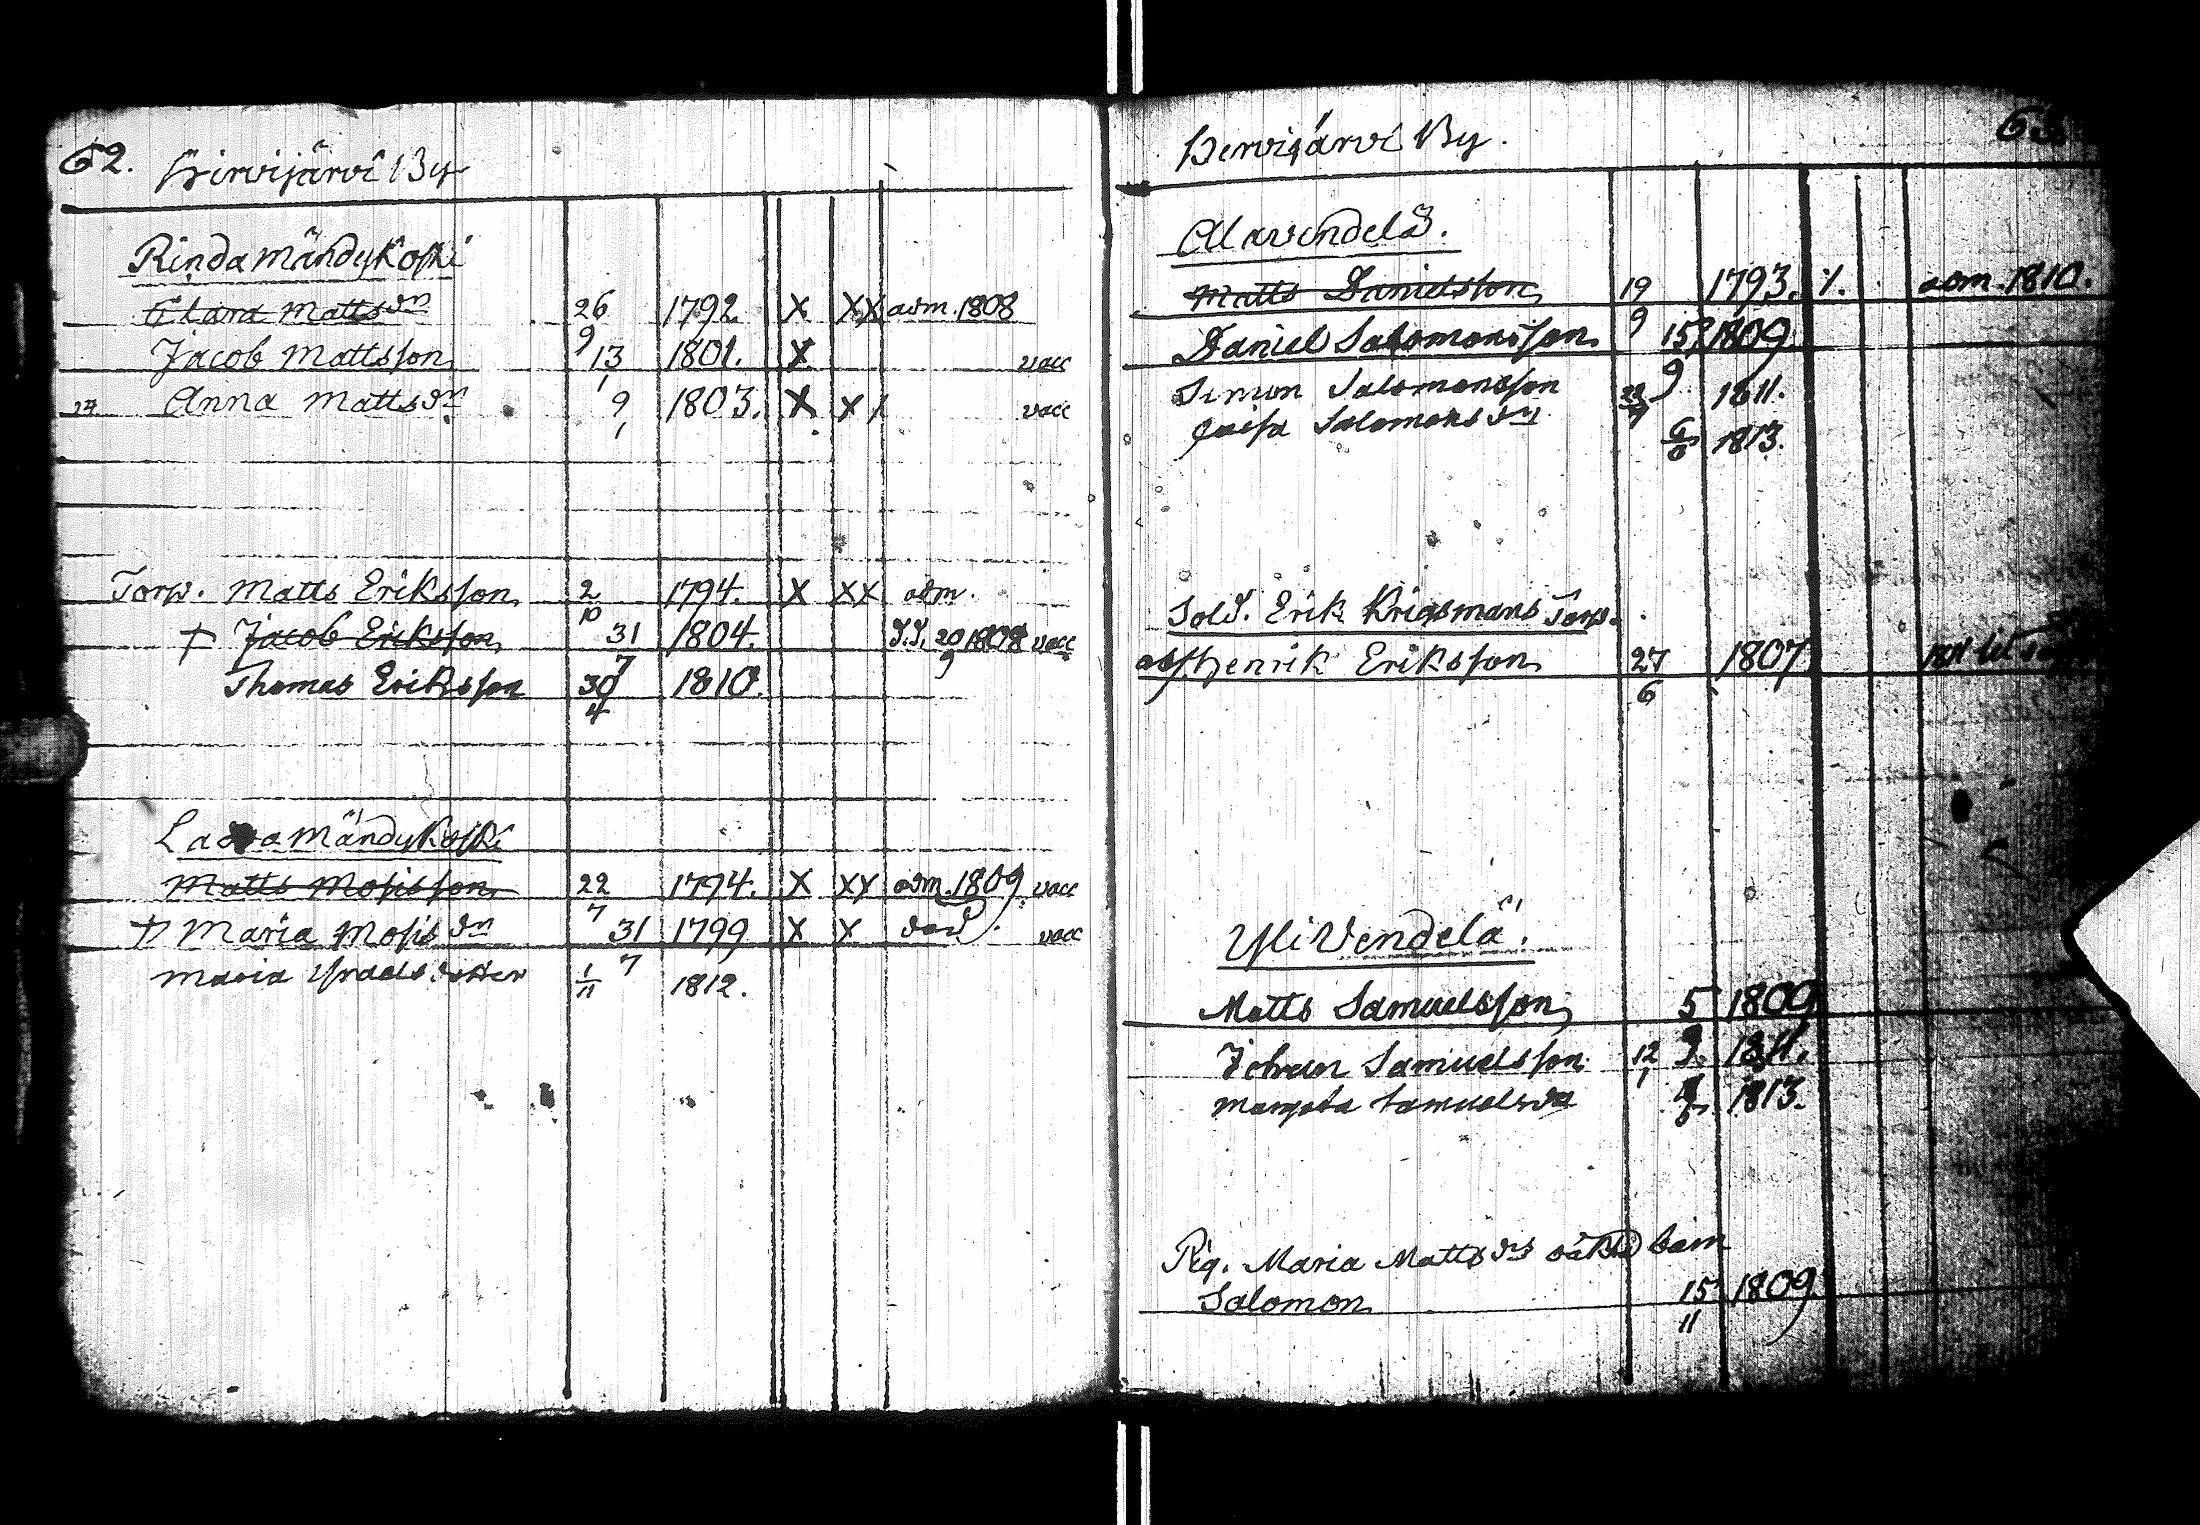 62. Hirvijärvi By
RindaMändykoski
Clara Mattsdr 26/9 1792. X XX adm. 1808
Jacob Mattsson 13/1 1801. X vacc
Anna Mattsdr 9/1 1803. X X/ vacc
Torp. Matts Eriksson 2/10 1794. X XX adm.
† Jacob Eriksson 31/7 1804. 20/9 1808 vacc
Thomas Eriksson 30/4 1810.
Mändykoski
Matts Mosisson 22/7 1794. X XX adm. 1809 vacc
† Maria Mosisdr 31/7 1799 X X död. vacc
Maria Israels dotter 1/11 1812.
63
Hervijärvi By.
Alavendelä.
Matts Danielsson 19/9 1793. /. adm. 1810.
Daniel Salomonsson 15/9 1809.
Simon Salomonsson 1811.
Caisa Salomonsdr 1813.
Sold. Erik Krigsmans Torp.
Henrik Eriksson 27/6 1807
YliVendelä.
Matts Samuelsson 5 1809
Johan Samuelsson 12/1 1811.
Margeta Samuelsdr 1813.
Pig. Maria Mattsdrs oäkta barn
Salomon 15/11 1809